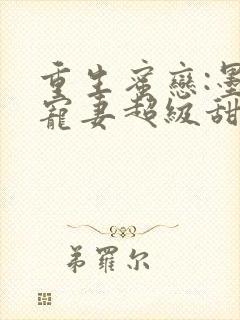 重生蜜戀:墨
寵妻超級甜
弟羅尔